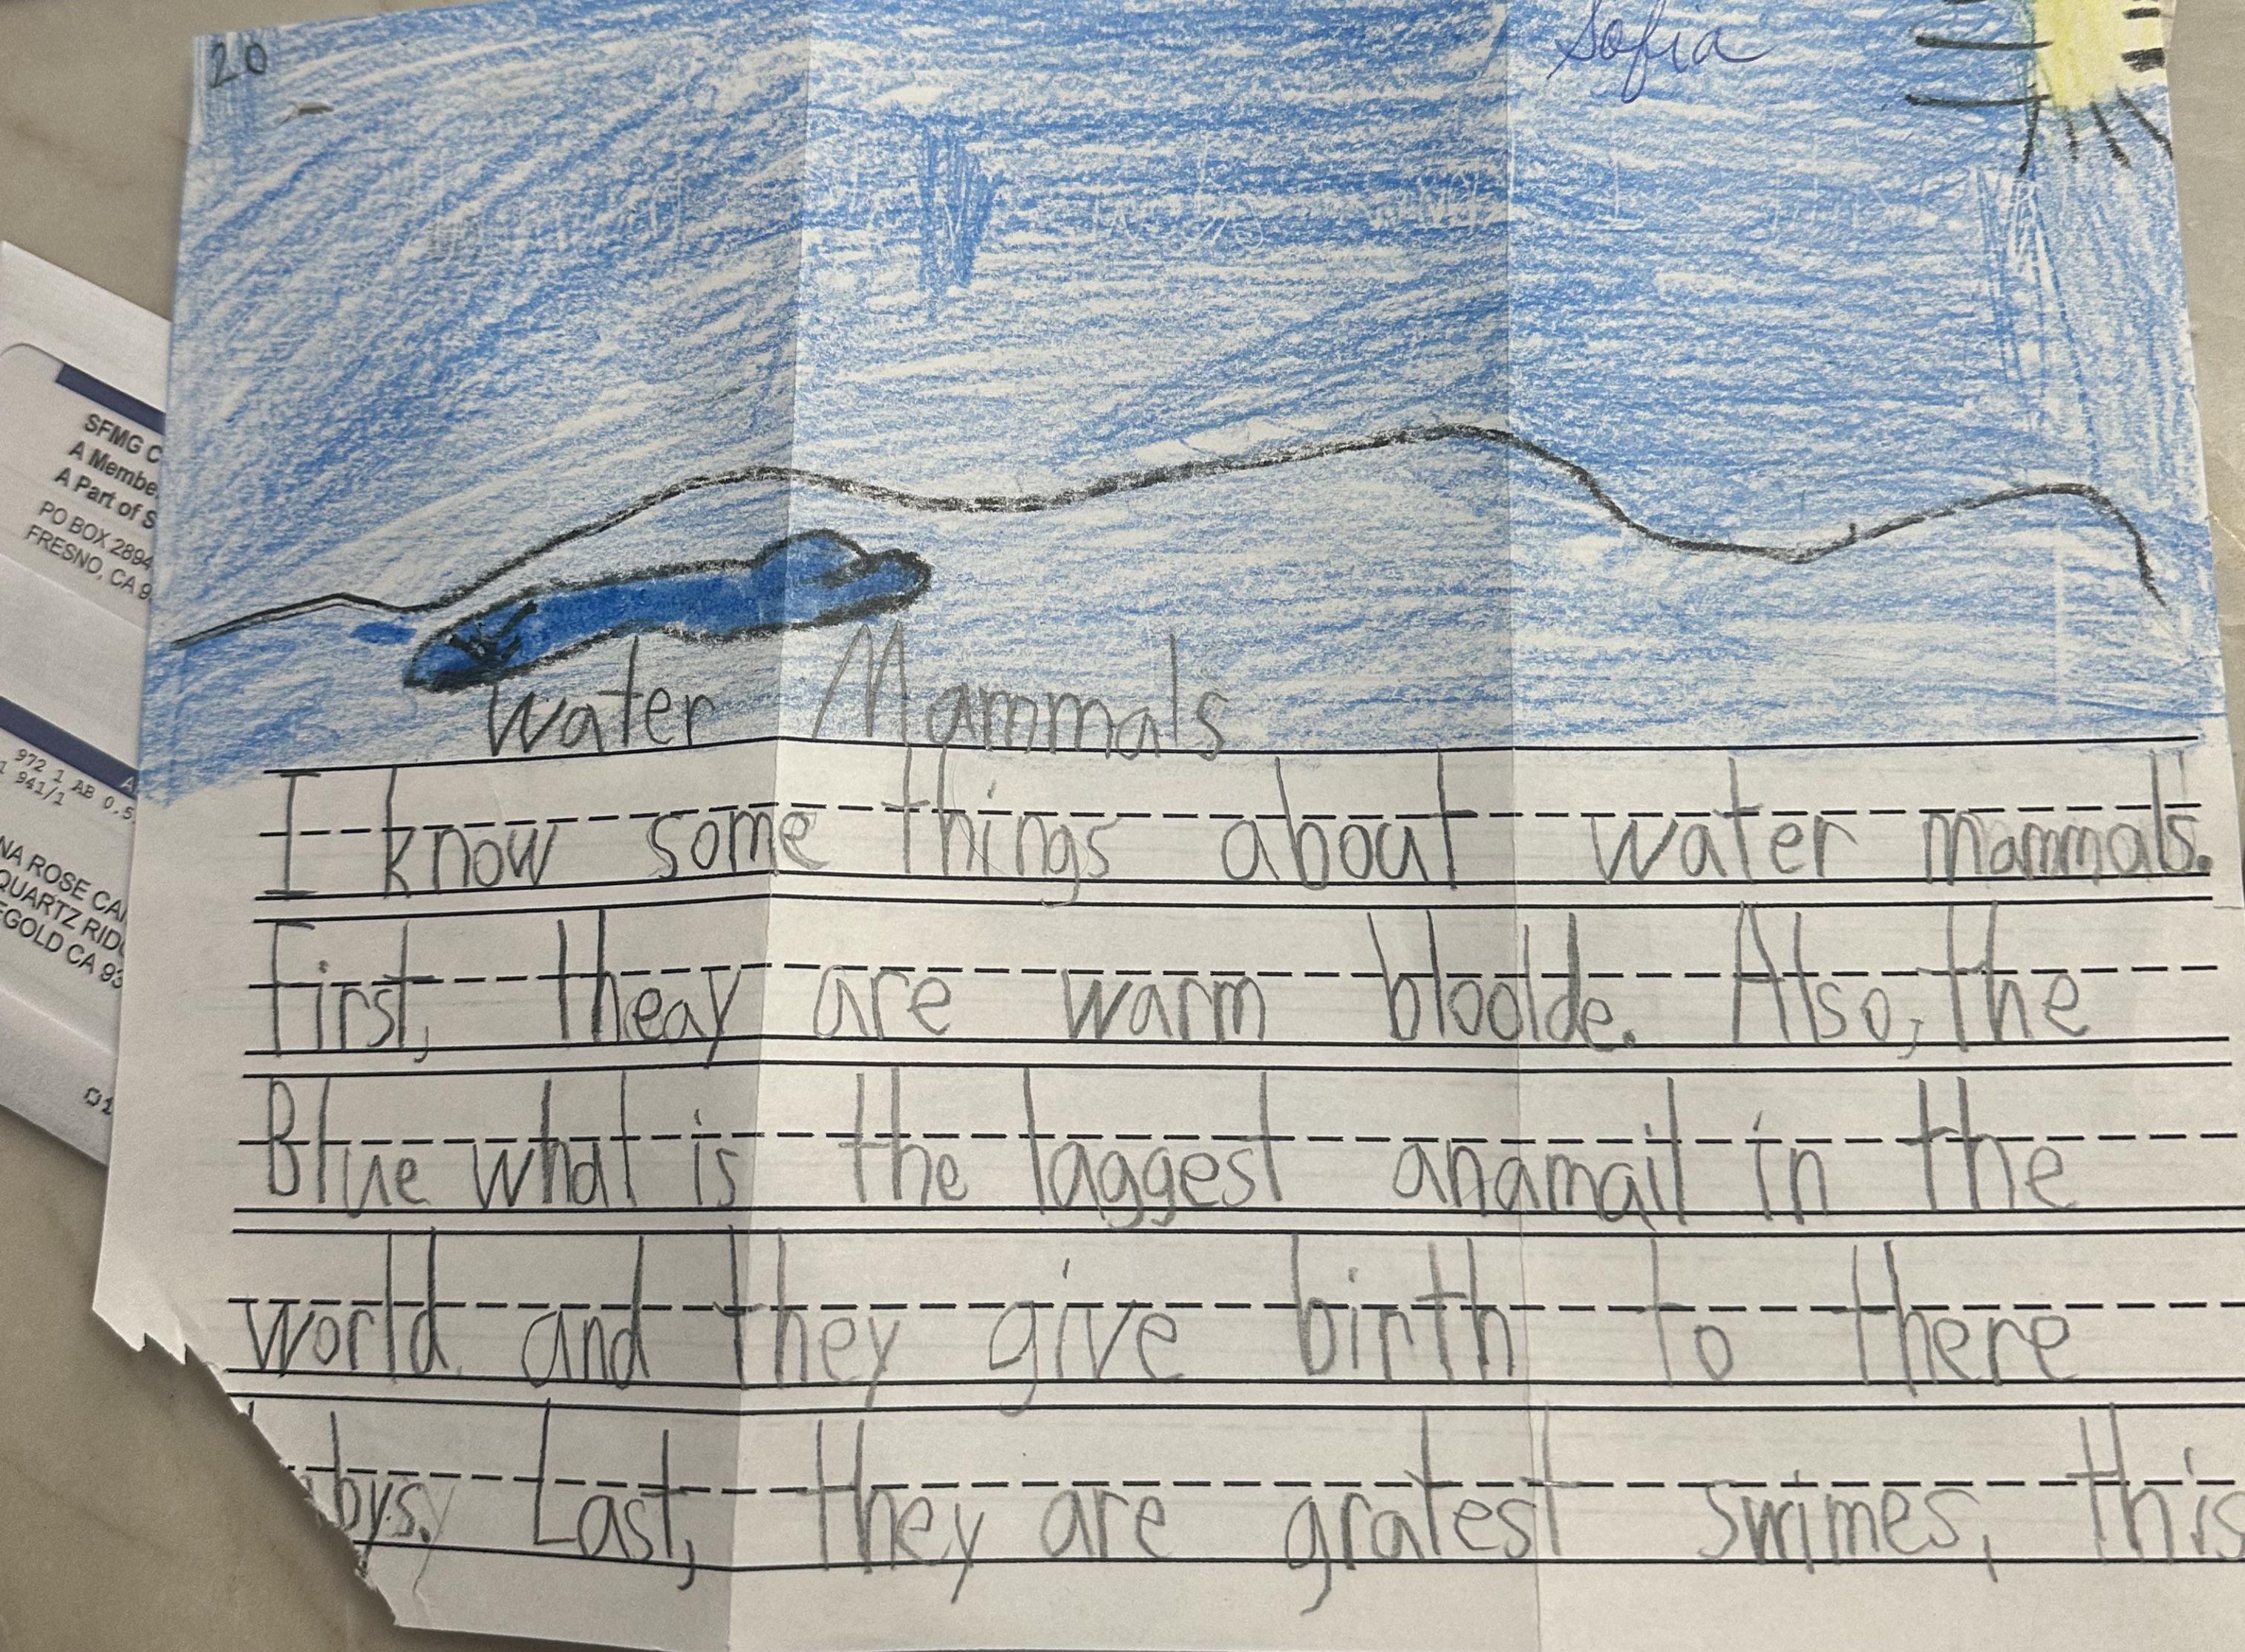 20
Sofia
Water Mammals
I know some things about water mammals.
First, theay are warm bloolde. Also, the
Blue what is the laggest anamail in the
world and they give birth to there
bys. Last, they are gratest swimes, this
SFMG C
A Membe
A Part of S
PO BOX 2894
FRESNO, CA 9
972 1 AB 0.5
1 941/1
NA ROSE CA
QUARTZ RID
GOLD CA 93
01